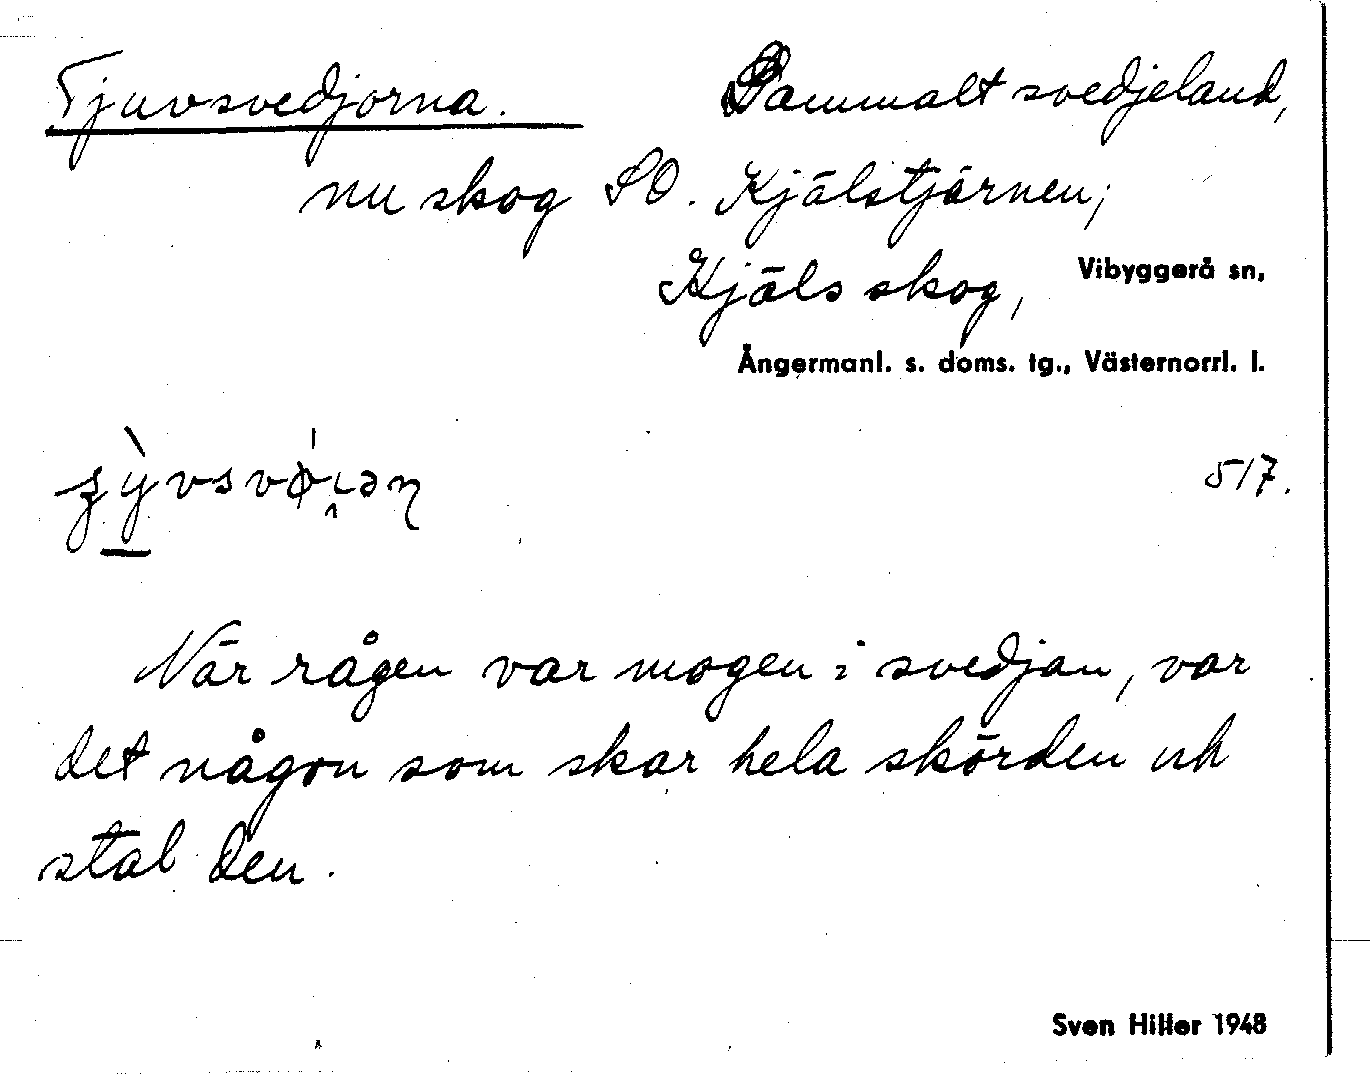 Tjuvsvedjorna. Gammalt svedjeland,
nu skog SO. Kjälstjärnen;
Kjäls skog, Vibyggerå sn,
Ångermanl. s. doms. tg., Västernorrl. l.
517.
När rågen var mogen i svedjan, var
det någon som skar hela skörden och
stal den.
Sven Hiller 1948